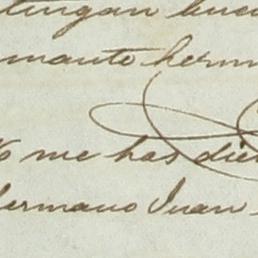 tingan buen
mante herm
no me has dich
hermano Juan